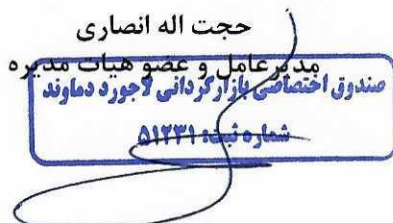 حجت اله انصاری
مدیرعامل و عضو هیات مدیره
صندوق اختصاصی بازارگردانی لاجورد دماوند
شماره ثبت: ۵۱۲۳۱